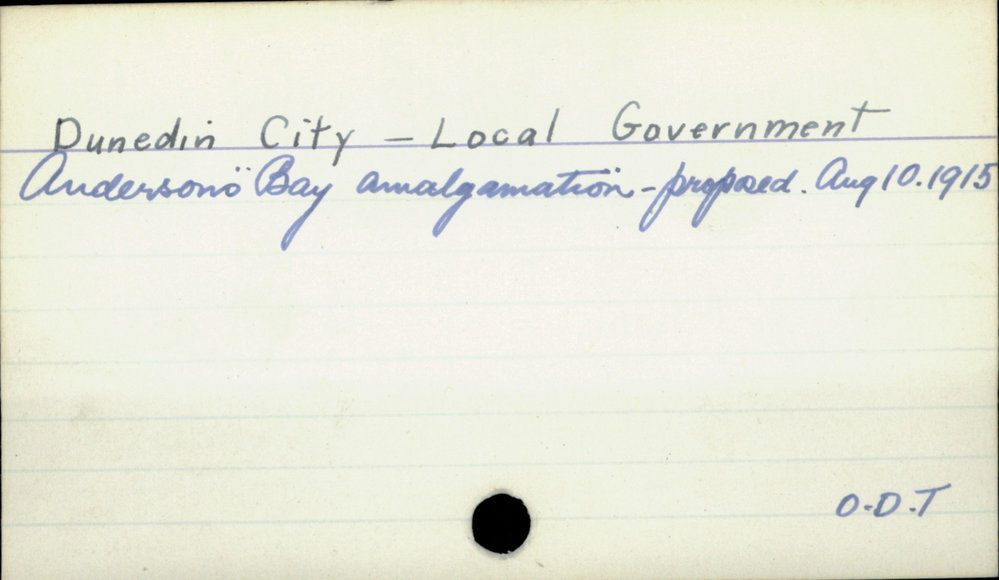 Dunedin City - Local Government
Andersons Bay amalgamation - proposed. Aug 10. 1915
O.D.T